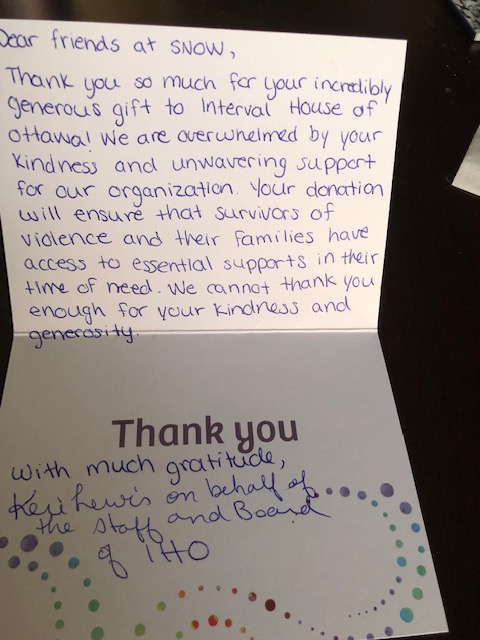 Dear friends at SNOW,
Thank you so much for your incredibly
generous gift to Interval House of
Ottawa! We are overwhelmed by your
kindness and unwavering support
for our organization. Your donation
will ensure that survivors of
violence and their families have
access to essential supports in their
time of need. We cannot thank you
enough for your kindness and
generosity.
Thank you
With much gratitude,
Keri Lewis on behalf of
the staff and Board
of IHO